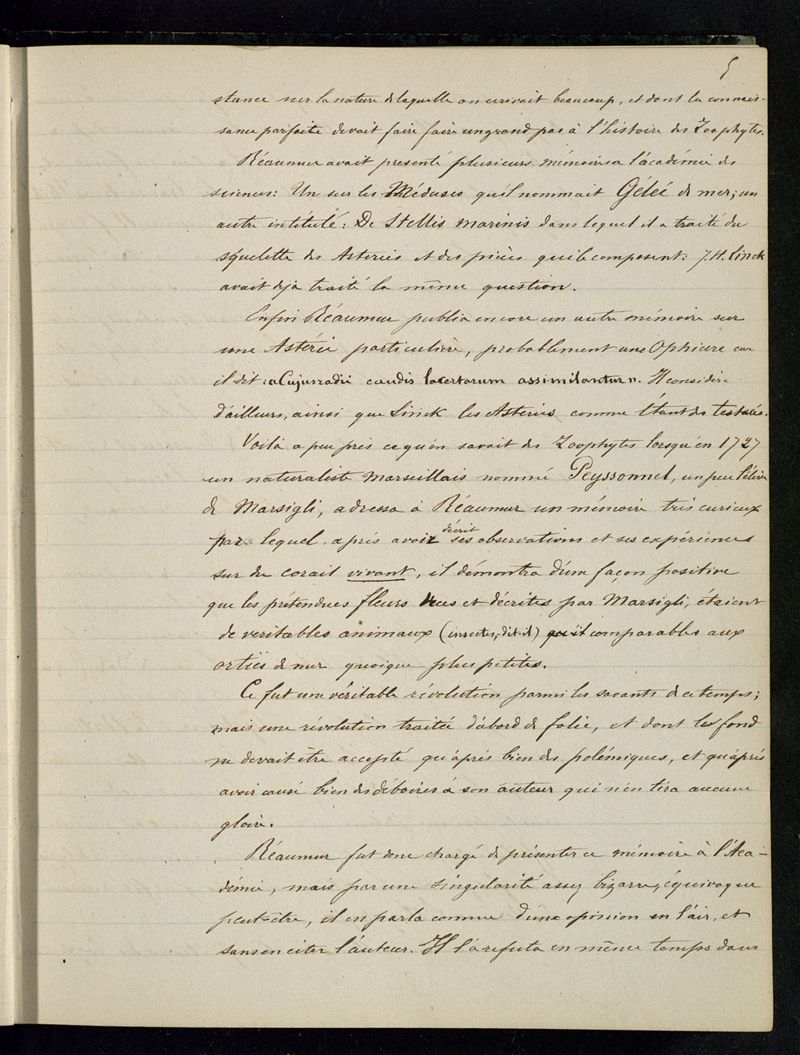 5
stance sur la nature de laquelle on écrivait beaucoup, et dont la connais-
sance parfaite devait faire faire un grand pas à l'histoire des Zoophytes.
Réaumur avait presenté plusieurs mémoires a l'académie des
sciences: Un sur les Méduses qu'il nommait Géleé de mer; un
autre intitulé: De Stellis marinis dans lequel il a traité du
squelette des Asteries et des pièces qui le composent. J.H. Linck
avait déjà traité la même question.
Enfin Réaumur publia encore un autre mémoire sur
une Asterie particulière, probablement une Ophiure car
il dit: « Cujus radii caudis lacertarum assimilantur ». Il considère
d'ailleurs, ainsi que Linck les Asteries comme étant des testacés.
Voilà a peu près ce qu'on savait des Zoophytes lorsqu'en 1727
un naturaliste Marseillais nommé Peyssonnel, un peu l'élève
de Marsigli, adressa à Réaumur un mémoire très curieux
par lequel après avoir décrit ses observations et ses expériences
sur du corail vivant, il démontra d'une façon positive
que les prétendues fleurs vues et décrites par Marsigli, étaient
de veritables animaux (insectes, dit-il) comparables aux
orties de mer quoique plus petites.
Ce fut une véritable révolution parmi les savants de ce temps;
mais une révolution traitée d'abord de folie, et dont le fond
ne devait être accepté qu'après bien des polémiques, et qu'après
avoir causé bien des déboires à son auteur qui n'en tira aucune
gloire.
Réaumur fut donc chargé de présenter ce mémoire à l'Aca-
démie, mais par une singularité assez bizarre, équivoque
peut-être, il en parla comme d'une opinion en l'air, et
sans en citer l'auteur. Il la refuta en même temps dans